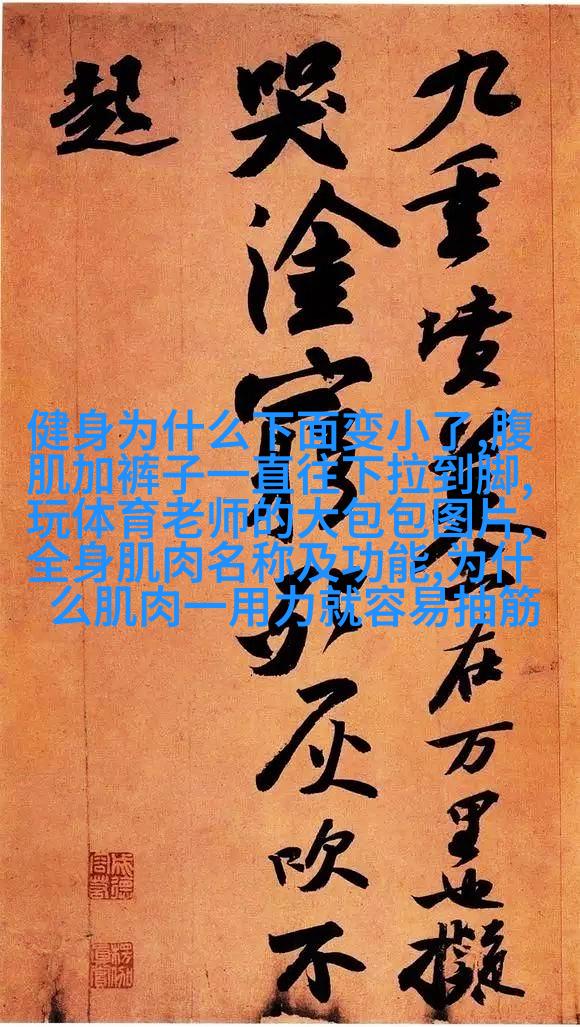 九重墳墓在万里也擬
哭塗窮死灰吹不
起
健身为什么下面变小了,腹
肌加裤子一直往下拉到脚,
玩体育老师的大包包图片,
全身肌肉名称及功能,为什
么肌肉一用力就容易抽筋
成德
容若
楞伽
真賞